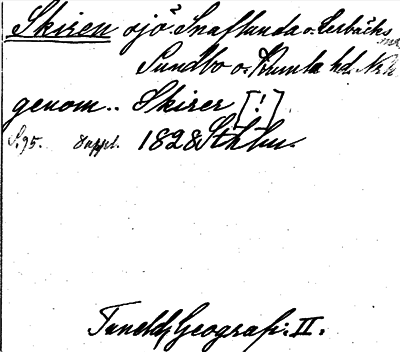 Skiren sjö Snaflunda o. Lerbäcks
Sundbo o. Kumla hd. Nke
genom.. Skirer [!]
S. 95. 8 uppl. 1828 Sthlm
Tuneld, Geograf. II.